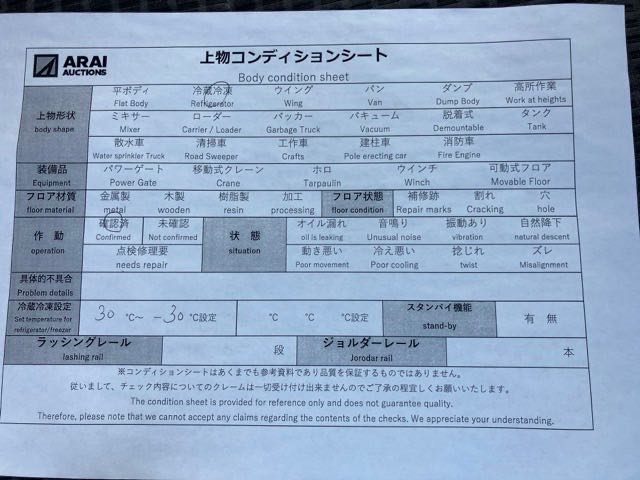 ARAI
AUCTIONS
上物コンディションシート
Body condition sheet
上物形状
body shape
平ボディ 冷蔵冷凍 ウイング バン ダンプ 高所作業
Flat Body Refrigerator Wing Van Dump Body Work at heights
ミキサー ローダー パッカー バキューム 脱着式 タンク
Mixer Carrier / Loader Garbage Truck Vacuum Demountable Tank
散水車 清掃車 工作車 建柱車 消防車
Water sprinkler Truck Road Sweeper Crafts Pole erecting car Fire Engine
装備品
Equipment
パワーゲート 移動式クレーン ホロ ウインチ 可動式フロア
Power Gate Crane Tarpaulin Winch Movable Floor
フロア材質
floor material
金属製 木製 樹脂製 加工
metal wooden resin processing
フロア状態
floor condition
補修跡 割れ 穴
Repair marks Cracking hole
作 動
operation
確認済 未確認
Confirmed Not confirmed
点検修理要
needs repair
状 態
situation
オイル漏れ 音鳴り 振動あり 自然降下
oil is leaking Unusual noise vibration natural descent
動き悪い 冷え悪い 捻じれ ズレ
Poor movement Poor cooling twist Misalignment
具体的不具合
Problem details
冷蔵冷凍設定
Set temperature for
refrigerator/freezer
30 ℃～ -30 ℃設定
℃ ℃ ℃設定
スタンバイ機能
stand-by
有 無
ラッシングレール
lashing rail
段
ジョルダーレール
Jorodar rail
本
※コンディションシートはあくまでも参考資料であり品質を保証するものではありません。
従いまして、チェック内容についてのクレームは一切受け付け出来ませんのでご了承の程宜しくお願いいたします。
The condition sheet is provided for reference only and does not guarantee quality.
Therefore, please note that we cannot accept any claims regarding the contents of the checks. We appreciate your understanding.